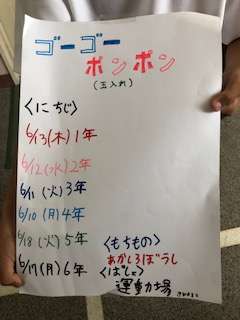 ゴーゴー
ポンポン
(玉入れ)
<にちじ>
6/13(木)1年
6/12(水)2年
6/11(火)3年
6/10(月)4年
6/18(火)5年
6/17(月)6年
<もちもの>
あかしろぼうし
<ばしょ>
運動場